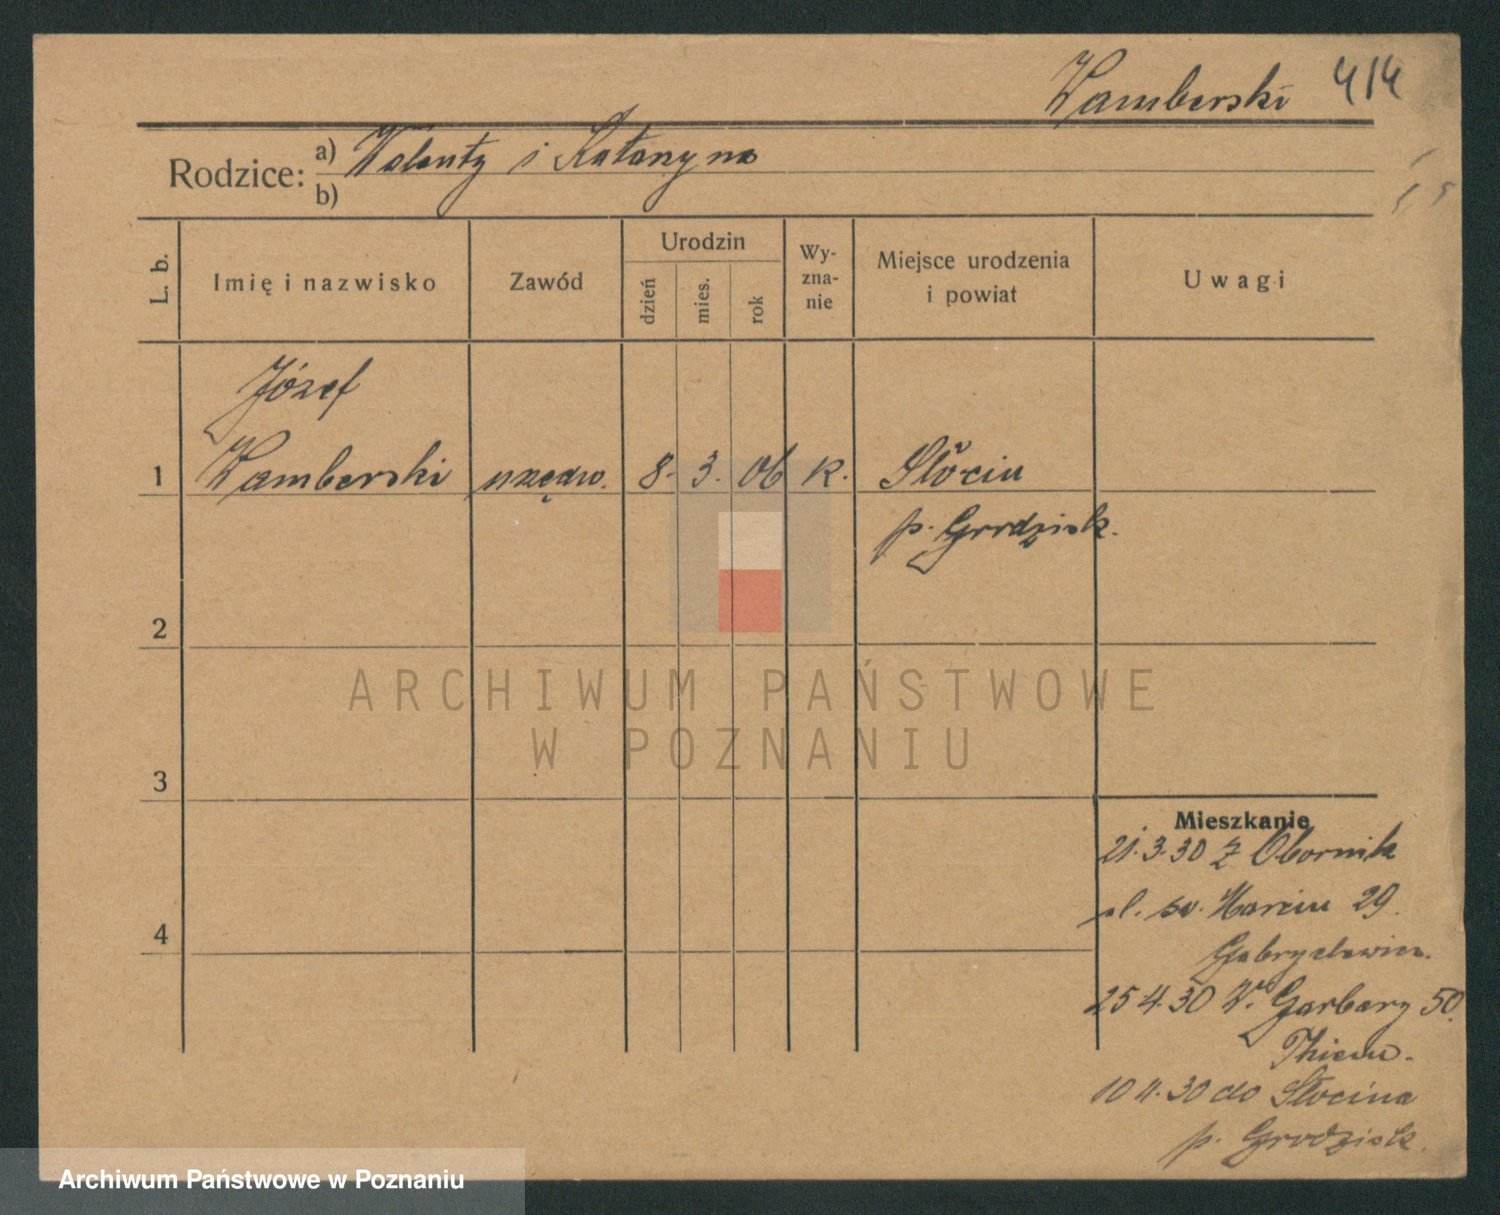 Wamberski 414
Rodzice: a) Walenty i Katarzyna
b)
L. b.
Imię i nazwisko
Zawód
Urodzin
dzień
mies.
rok
Wy-
zna-
nie
Miejsce urodzenia
i powiat
Uwagi
Józef
1 Wamberski urzędn. 8. 3. 06 K.
p. Grodzisk.
2
3
4
Mieszkanie
21.3.30 z Obornik
św. Marcin 29.
25 4.30 Garbary 50.
10 4.30 do Słocina
p. Grodzisk.
ARCHIWUM PAŃSTWOWE
W POZNANIU
Archiwum Państwowe w Poznaniu